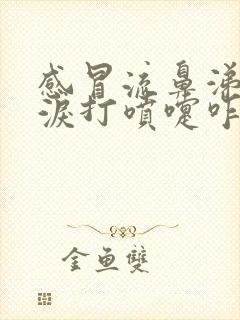 感冒流鼻涕
淚打噴嚏咋
金魚雙